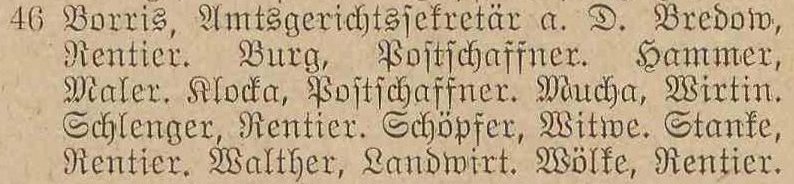 46 Borris, Amtsgerichtssekretär a. D. Bredow,
Rentier. Burg, Postschaffner. Hammer,
Maler. Klocka, Postschaffner. Mucha, Wirtin.
Schlenger, Rentier. Schöpfer, Witwe. Stanke,
Rentier. Walther, Landwirt. Wölke, Rentier.